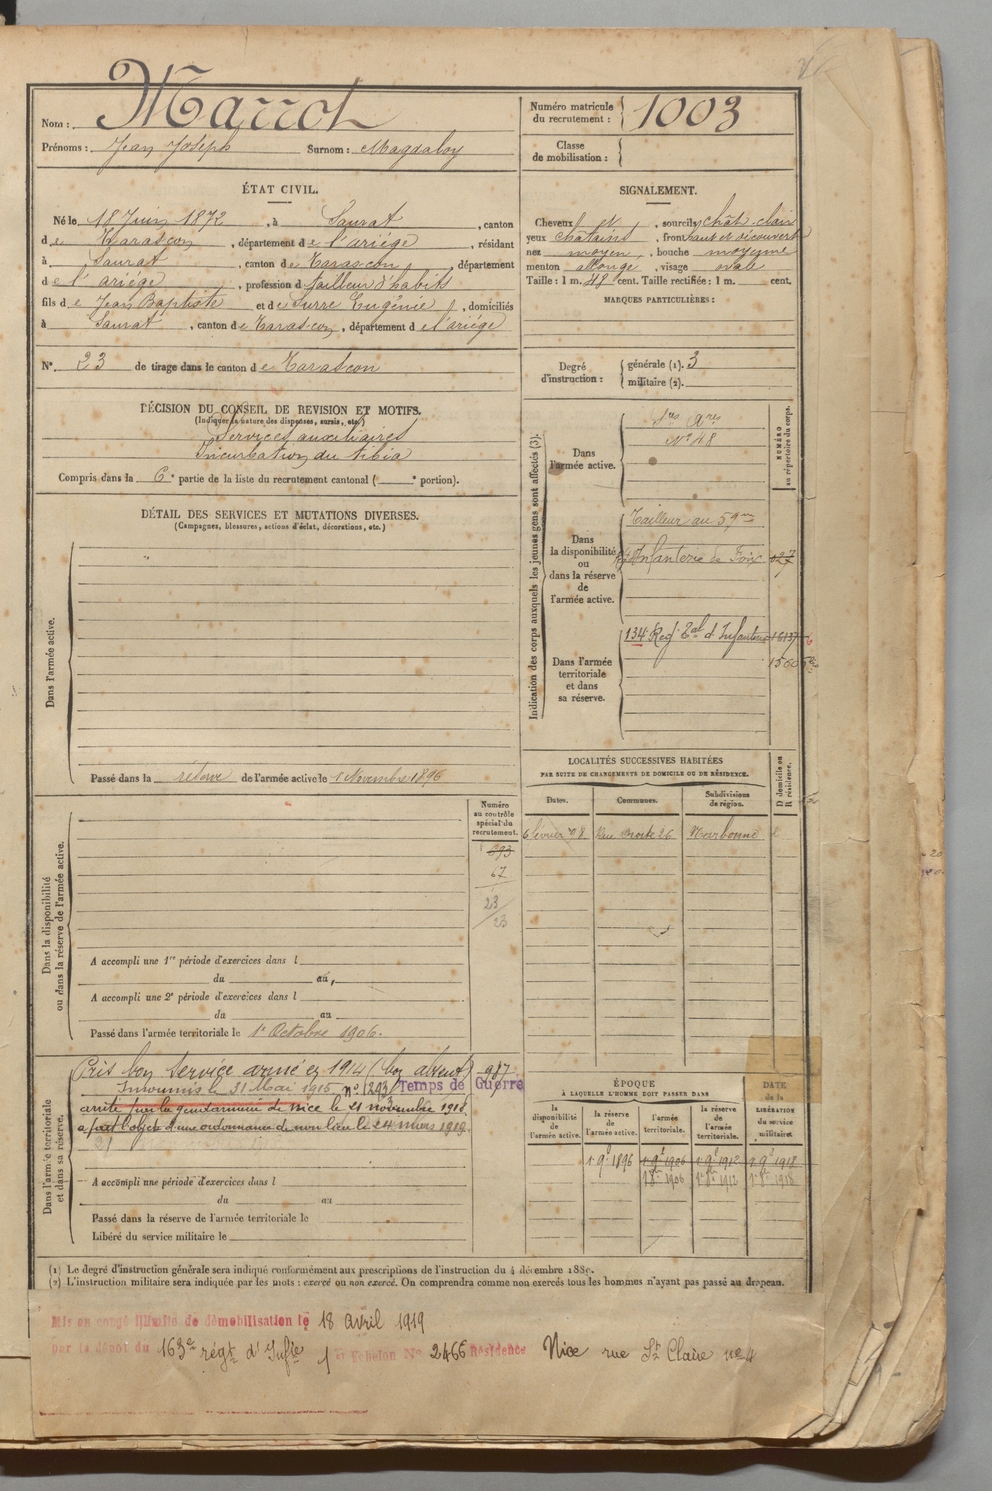 Nom : Marrot
Prénoms : Jean Joseph Surnom : Magdaloy
Numéro matricule du recrutement : 1003
Classe de mobilisation :
ÉTAT CIVIL.
Né le 18 Juin 1872, à Saurat, canton
de Tarascon, département de l'ariége, résidant
à Saurat, canton de Tarascon, département
de l'ariége, profession de tailleur d'habits
fils de Jean Baptiste et de Surre Eugénie, domiciliés
à Saurat, canton de Tarascon, département de l'ariége
N° 23 de tirage dans le canton de Tarascon
SIGNALEMENT.
Cheveux et, sourcils chât. clair
yeux châtains, front haut et découvert
nez moyen, bouche moyenne
menton allongé, visage ovale
Taille : 1 m. 48 cent. Taille rectifiée : 1 m. cent.
MARQUES PARTICULIÈRES :
Degré d'instruction : générale (1). 3
militaire (2).
DÉCISION DU CONSEIL DE REVISION ET MOTIFS.
(Indiquer la nature des dispenses, sursis, etc.)
Services auxiliaires
Incurbation du tibia
Compris dans la 6e partie de la liste du recrutement cantonal ( e portion).
DÉTAIL DES SERVICES ET MUTATIONS DIVERSES.
(Campagnes, blessures, actions d'éclat, décorations, etc.)
Dans l'armée active.
Passé dans la réserve de l'armée active le 1 Novembre 1896
Indication des corps auxquels les jeunes gens sont affectés (3).
NUMÉRO au répertoire du corps.
Dans l'armée active.
N° 48
Dans la disponibilité ou dans la réserve de l'armée active.
Tailleur au 59me
Infanterie de Foix
Dans l'armée territoriale et dans sa réserve.
134 Reg t al d'Infanterie
LOCALITÉS SUCCESSIVES HABITÉES
PAR SUITE DE CHANGEMENTS DE DOMICILE OU DE RÉSIDENCE.
Dates. Communes. Subdivisions de région. D domicile ou R résidence.
6 février 98 Rue Droite 26 Narbonne
Dans la disponibilité ou dans la réserve de l'armée active.
Numéro au contrôle spécial du recrutement.
693
67
23
23
A accompli une 1re période d'exercices dans l
du au
A accompli une 2e période d'exercices dans l
du au
Passé dans l'armée territoriale le 1er Octobre 1906.
Dans l'armée territoriale et dans sa réserve.
Pris bon service armé en 1914 (bon absent) 987
Insoumis le 31 Mai 1915 n° 1293 Temps de Guerre
arrêté par la gendarmerie de Nice le 21 novembre 1918.
a fait l'objet d'une ordonnance de non lieu le 24 mars 1919.
A accompli une période d'exercices dans l
du au
Passé dans la réserve de l'armée territoriale le
Libéré du service militaire le
ÉPOQUE
À LAQUELLE L'HOMME DOIT PASSER DANS
la disponibilité de l'armée active. la réserve de l'armée active. l'armée territoriale. la réserve de l'armée territoriale. DATE de la LIBÉRATION du service militaire.
1 9e 1896 1 9e 1906 1 9e 1912 1 9e 1918
1 8e 1906 1 8e 1912 1 8e 1918
(1) Le degré d'instruction générale sera indiqué conformément aux prescriptions de l'instruction du 4 décembre 1889.
(2) L'instruction militaire sera indiquée par les mots : exercé ou non exercé. On comprendra comme non exercés tous les hommes n'ayant pas passé au drapeau.
Mis en congé illimité de démobilisation le 18 avril 1919
par le dépôt du 163e régt d'Infie 1er Echelon N° 2466 Résidence Nice rue Ste Claire n° 4